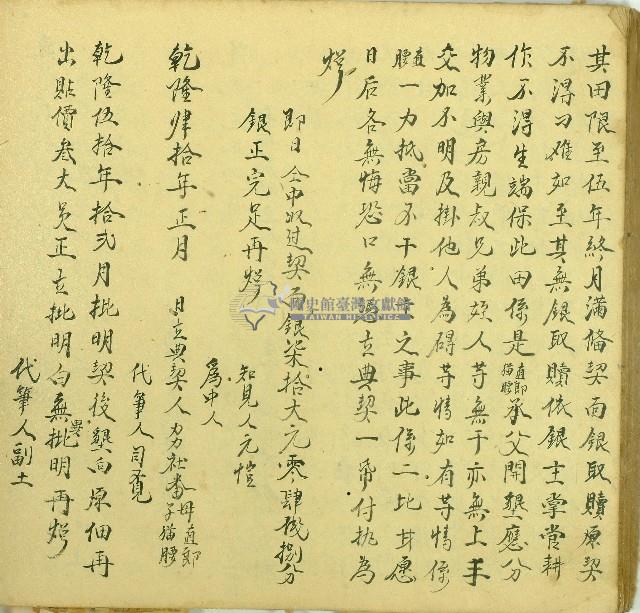 其田限至伍年終月滿備契面銀取贖原契
不得刁难如至其無銀取贖依銀主掌管耕
作不得生端保此田係是直郎猫腰承父開墾應分
物業與房親叔兄弟頗人等無干亦無上手
交加不明及掛他人為碍等情如有等情係
直腰一力抵當不干銀主之事此係二比甘愿
日后各無悔恐口無憑立典契一帋付执為
炤
即日仝中収过契面銀柒拾大元零肆錢捌分
銀正完足再炤
知見人元愷
為中人
乾隆肆拾年正月 日立典契人力社番丹直郎子猫腰
代筆人司寛
乾隆伍拾年拾弍月批明契後墾向原佃再
出貼價叁大員正立批明白無異批明再炤
代筆人副土
國史館臺灣文獻館
TAIWAN HISTORICA